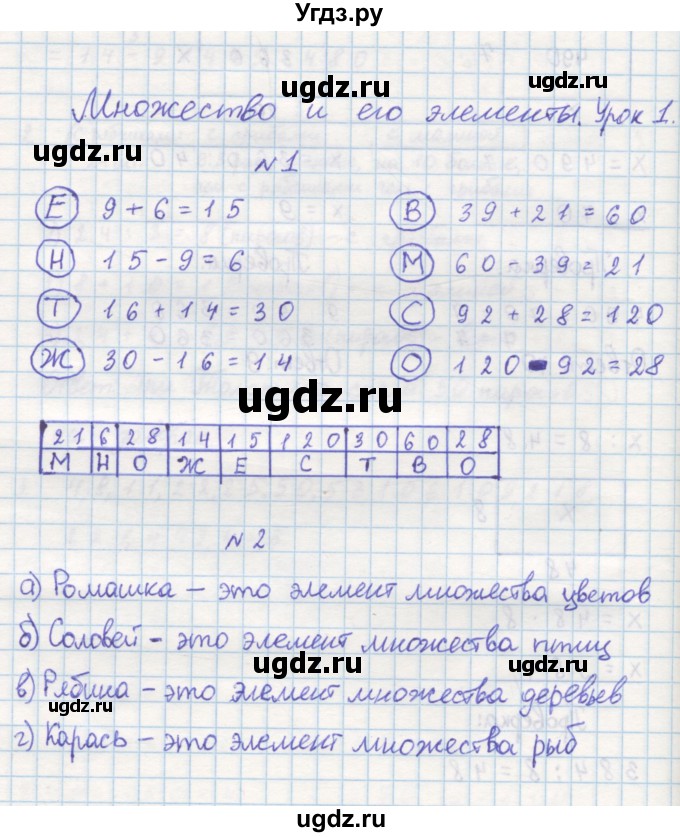 Угдз.ру
Множество и его элементы. Урок 1.
ugdz.ru
ugdz.ru
№1
Е 9+6=15
В 39+21=60
Н 15-9=6
М 60-39=21
Т 16+14=30
С 92+28=120
ugdz.ru
ugdz.ru
Ж 30-16=14
О 120-92=28
ugdz.ru
21 6 28 14 15 120 30 60 28
М Н О Ж Е С Т В О
ugdz.ru
№2
ugdz.ru
а) Ромашка – это элемент множества цветов
б) Соловей – это элемент множества птиц
ugdz.ru
в) Рябина – это элемент множества деревьев
ugdz.ru
ugdz.ru
г) Карась – это элемент множества рыб
384:8=48
ugdz.ru
ugdz.ru